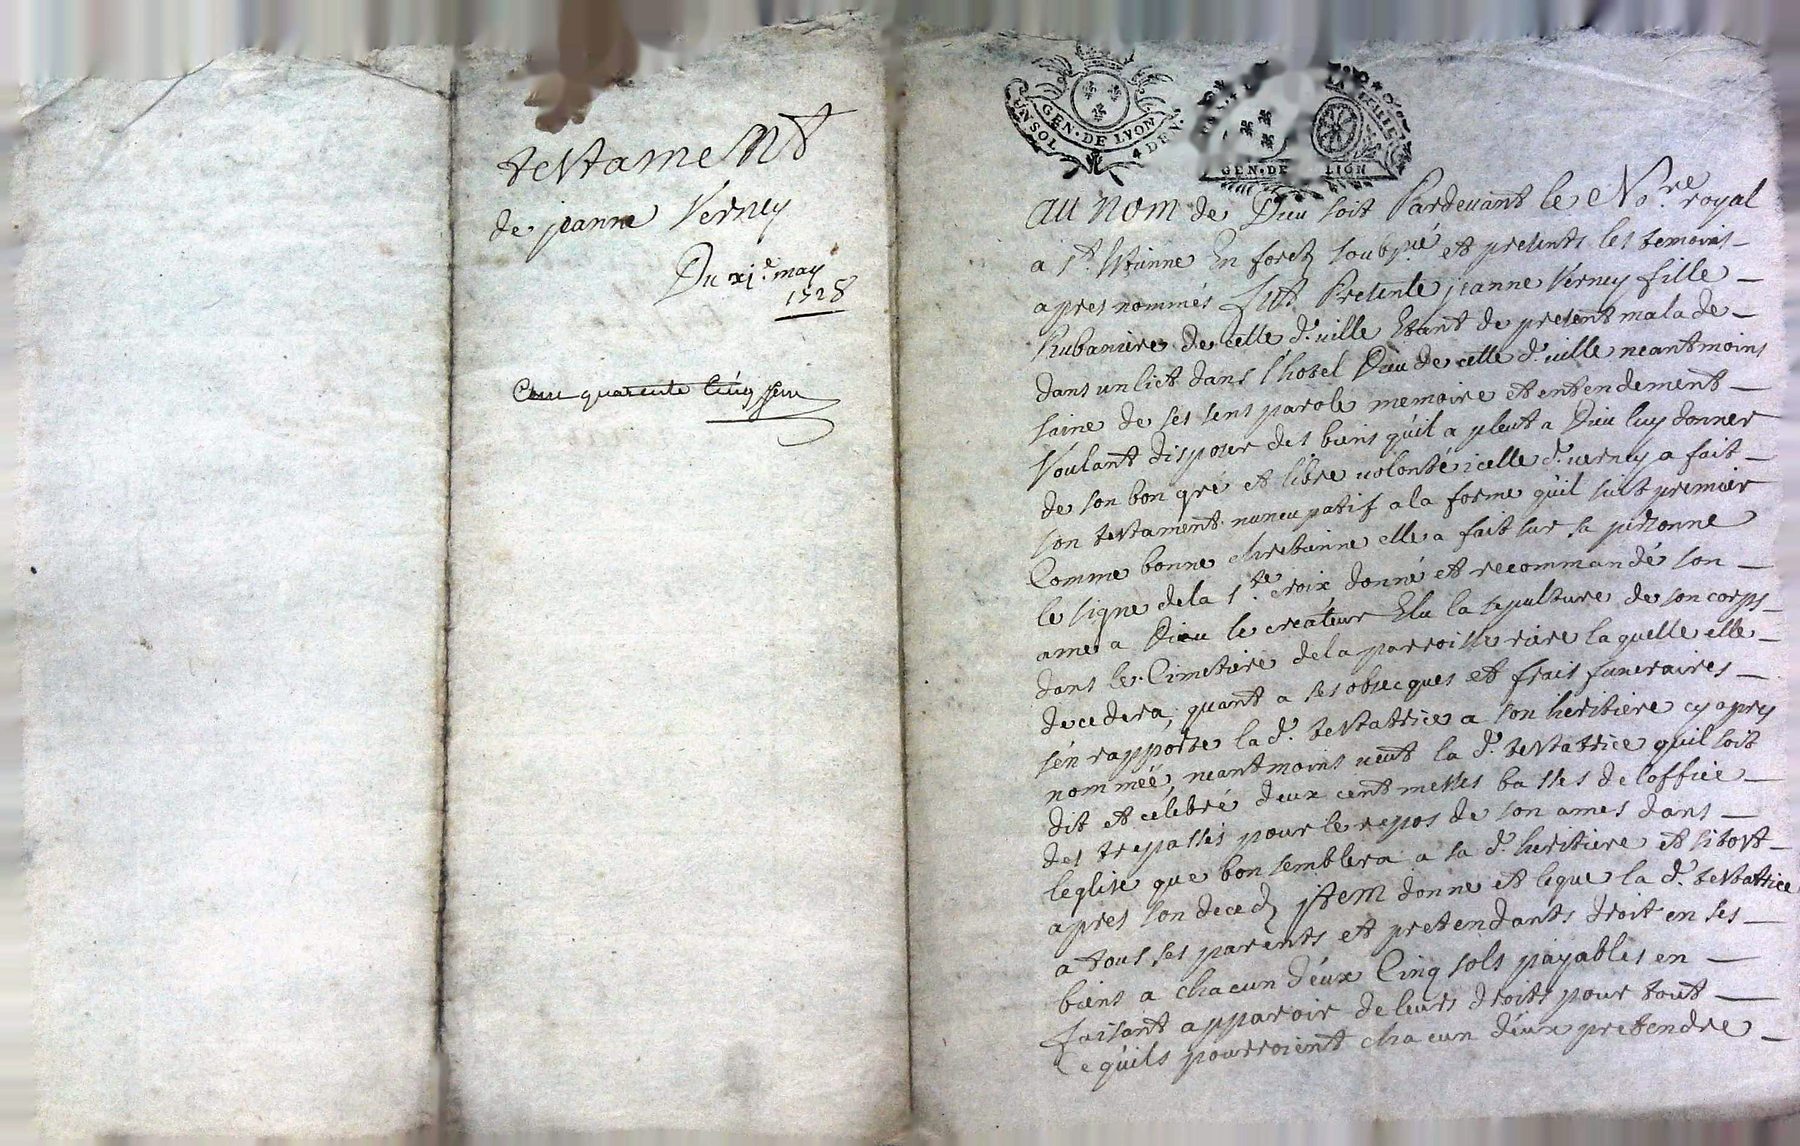 testament
de jeanne Verney
Du xj.e may
1728
Cent quarente cinq
UN SOL GEN·DE LYON 4 DEN.
GEN·DE LION
au nom de Dieu soit Pardevant le No.re royal
a st. Etienne En forest soubs.né et presents les temoins
apres nommés fut Presente jeanne Verney fille
Rubaniere de celle d. ville Etant de present malade
dans un lict dans l'hotel Dieu de celle d. ville neantmoins
saine de ses sens parole memoire et entendement
Voulant disposer des biens qu'il a pleut a Dieu luy donner
de son bon gré et libre volonté icelle d. verney a fait
son testament nuncupatif a la forme qu'il suit premier
Comme bonne chretienne elle a fait sur sa personne
le signe de la s.te croix donné et recommandé son
ame a Dieu le createur Elu la sepulture de son corps
dans le Cimetiere de la parroisse riere laquelle elle
decedera, quant a ses obsecques et frais funeraires
s'en rapporte la d. testatrice a son heritiere cy apres
nommée, neantmoins veut la d. testatrice quil soit
dit et celebré deux cent messes basses de loffice
des trepassés pour le repos de son ames dans
leglise que bon semblera a sa d. heritiere et sitost
apres son deced jtem donne et legue la d. testatrice
a tous ses parents et pretendants droit en ses
biens a chacun d'eux Cinq sols payables en
faisant apparoir de leurs droits pour tout
Ce quils pourroient chacun d'eux pretendre